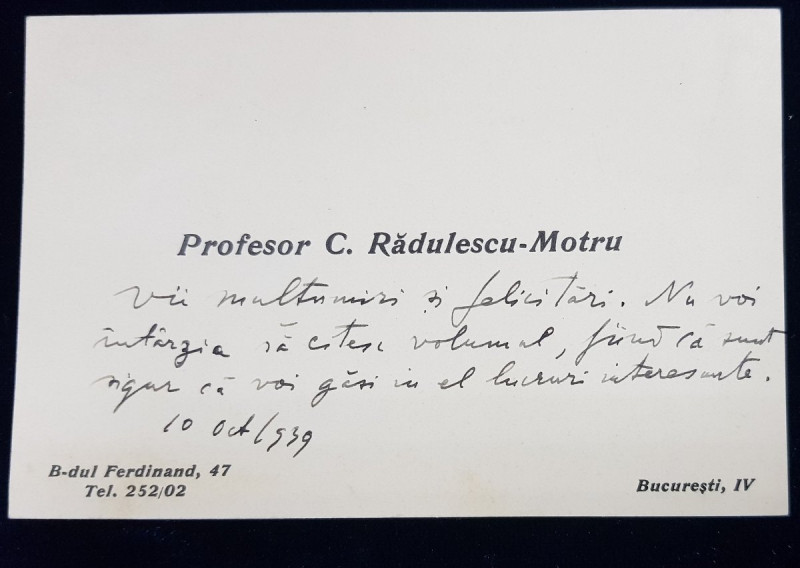 Profesor C. Rădulescu-Motru
Vii mulțumiri și felicitări. Nu voi
întârzia să citesc volumul, fiind că sunt
sigur că voi găsi in el lucruri interesante.
10 Oct/939
B-dul Ferdinand, 47
Tel. 252/02
București, IV